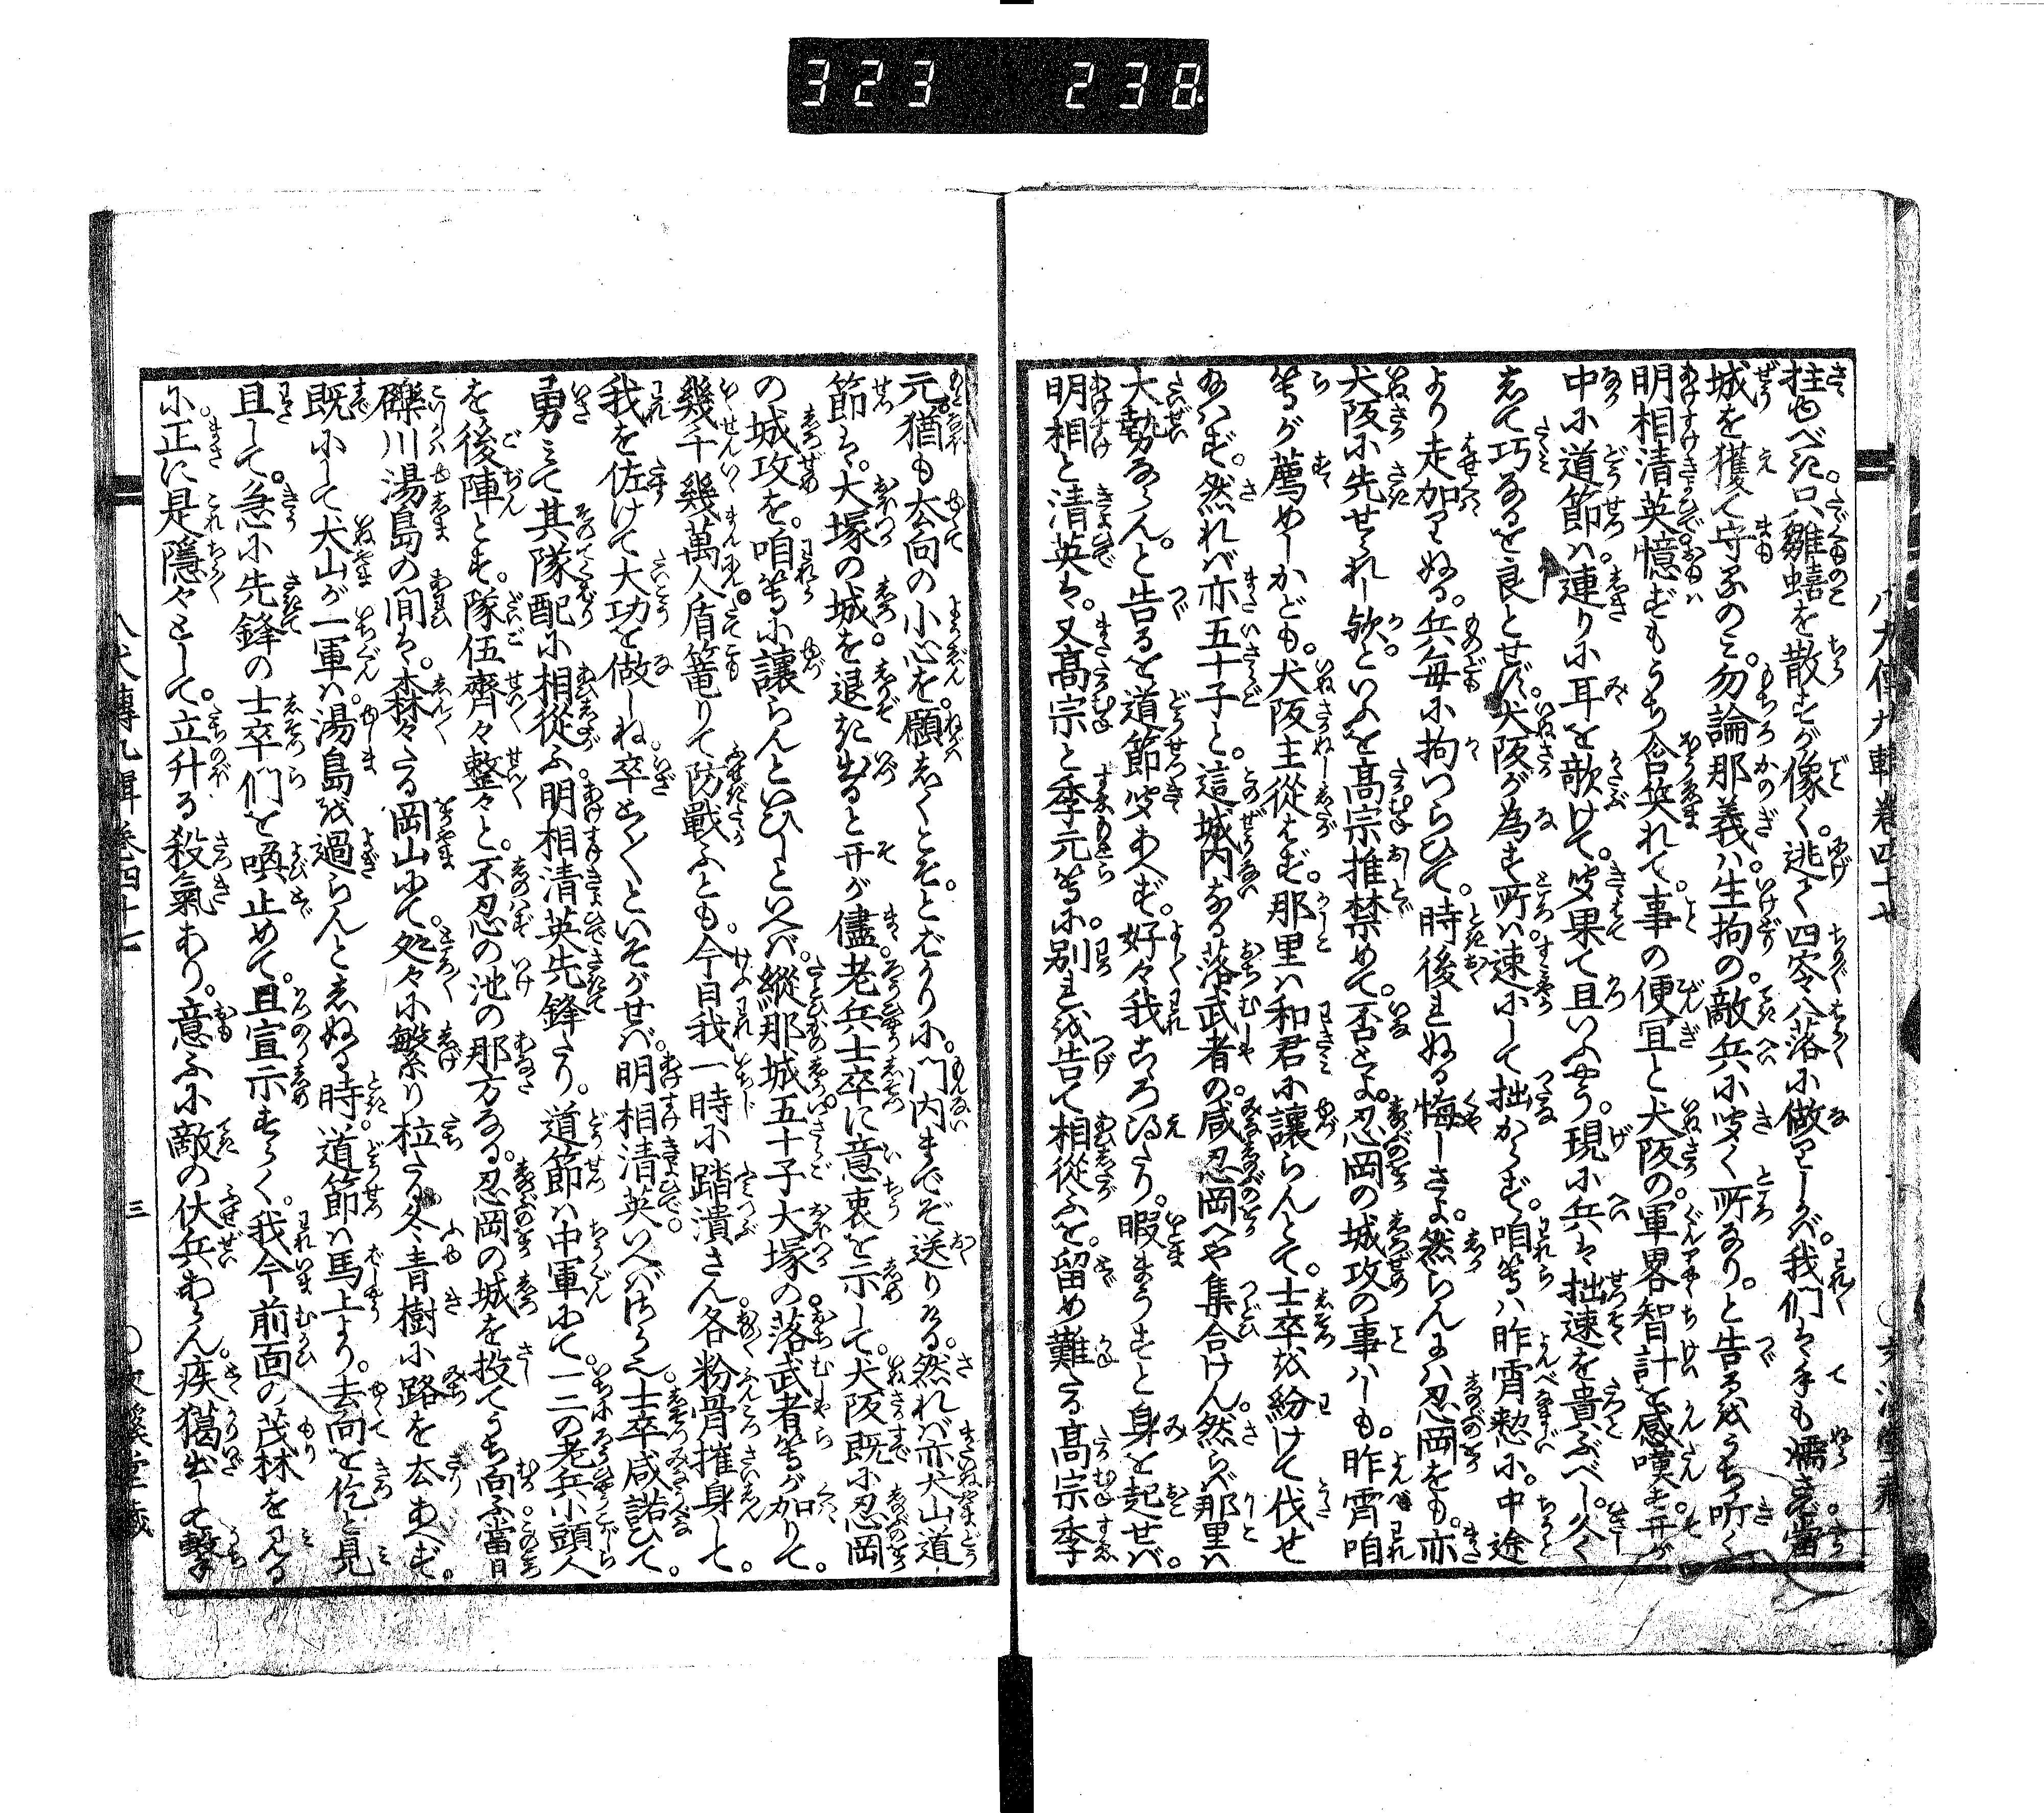 323 238
八犬傳九輯卷四十七
拄也べき只雛蟢を散すが像く逃て四零八落に做りしかば我們は手も濡さで當
城を獲て守るのみ勿論那義は生拘の敵兵に聞く所なりと告るをうち听く
明相清英憶ずもうち含笑れて事の便宜と犬阪の軍畧智計を感嘆す开が
中に道節は連りに耳を敧けて聞果て且いふやう現に兵は拙速を貴ぶべし久く
して巧なるを良とせず犬阪が為す所は速にして拙からず咱等は昨宵愁に中途
より走加りぬる兵毎に拘つらひて時後れぬる悔しさよ然らんには忍岡をも亦
犬阪に先せられし歟といふを高宗推禁めて否とよ忍岡の城攻の事はしも昨宵咱
等が薦めしかども犬阪主從はず那里は和君に讓らんとて士卒を紛けて伐せ
給はず然れば亦五十子と這城内なる落武者の咸忍岡へや集合けん然らば那里は
大勢ならんと告るを道節聞あへず好々我こゝろ得たり暇まうすと身を起せば
明相と清英は又高宗と季元等に別れを告て相從ふを留め難たる高宗季
元猶も去向の小心を願しくこそとばかりに門内までぞ送りける然れば亦犬山道
節は大塚の城を退き出ると开が儘老兵士卒に意衷を示して犬阪既に忍岡
の城攻を咱等に讓らんといひしといへば縱那城五十子大塚の落武者等が加りて
幾千幾萬人盾篭りて防戰ふとも今日我一時に踏潰さん各粉骨摧身して
我を佐けて大功を做しね卒とく〱といそがせば明相清英いへばさら也士卒咸諾ひて
勇みて其隊配に相從ふ明相清英先鋒たり道節は中軍にて一二の老兵小頭人
を後陣とす隊伍齊々整々と不忍の池の那方なる忍岡の城を投てうち向ふ當日
礫川湯島の間は森々たる岡山にて処々に繁り粒たる冬青樹に路を去あへず
既にして犬山が一軍は湯島を過らんとしぬる時道節は馬上より去向を佶と見
且して急に先鋒の士卒們を喚止めて且宣示すらく我今前面の茂林を見る
に正に是隱々として立升る殺氣あり意ふに敵の伏兵あらん疾獦出して擊
八犬傳九輯卷四十七
三